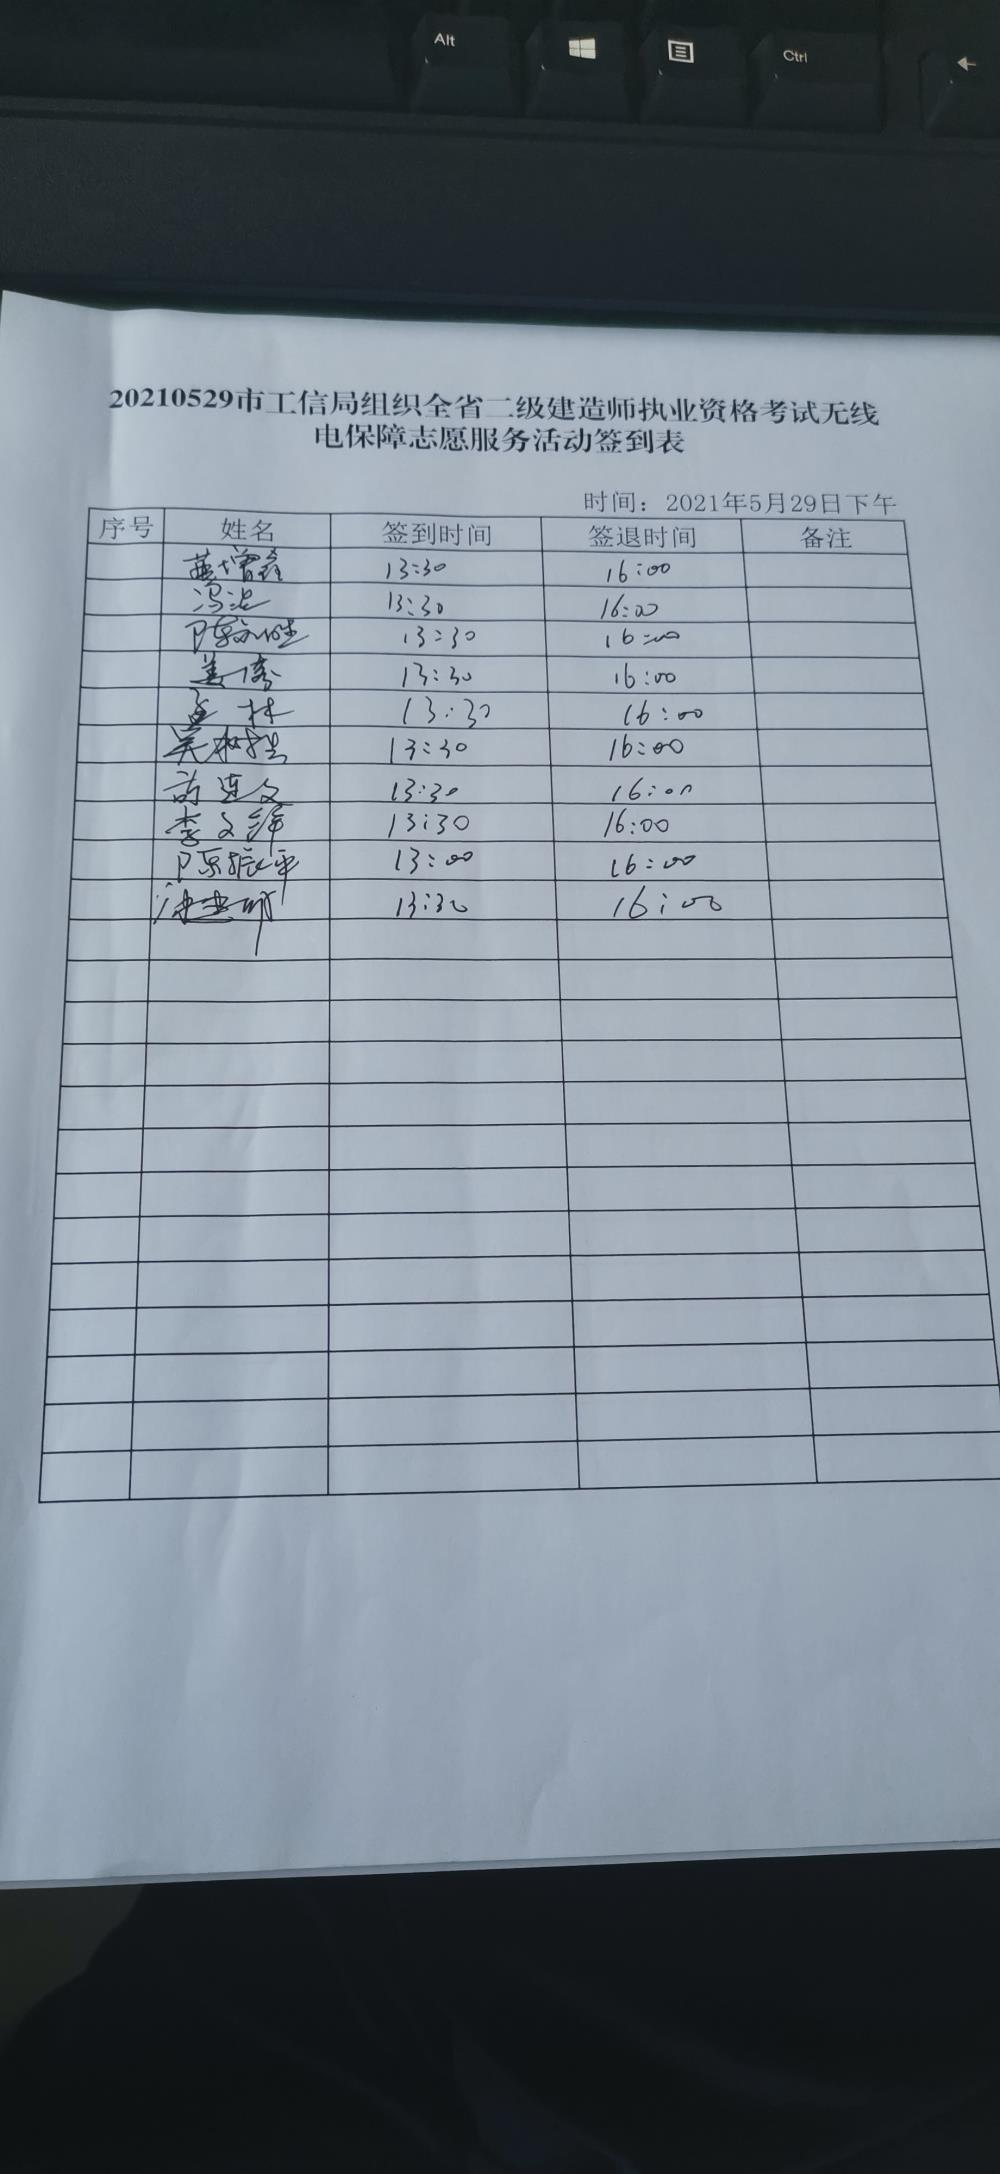 Alt
Ctrl
20210529市工信局组织全省二级建造师执业资格考试无线
电保障志愿服务活动签到表
时间：2021年5月29日下午
序号 姓名 签到时间 签退时间 备注
13:30 16:00
13:30 16:00
13:30 16:00
13:30 16:00
孟林 13:30 16:00
13:30 16:00
13:30 16:00
李文 13:30 16:00
陈振平 13:00 16:00
13:30 16:00